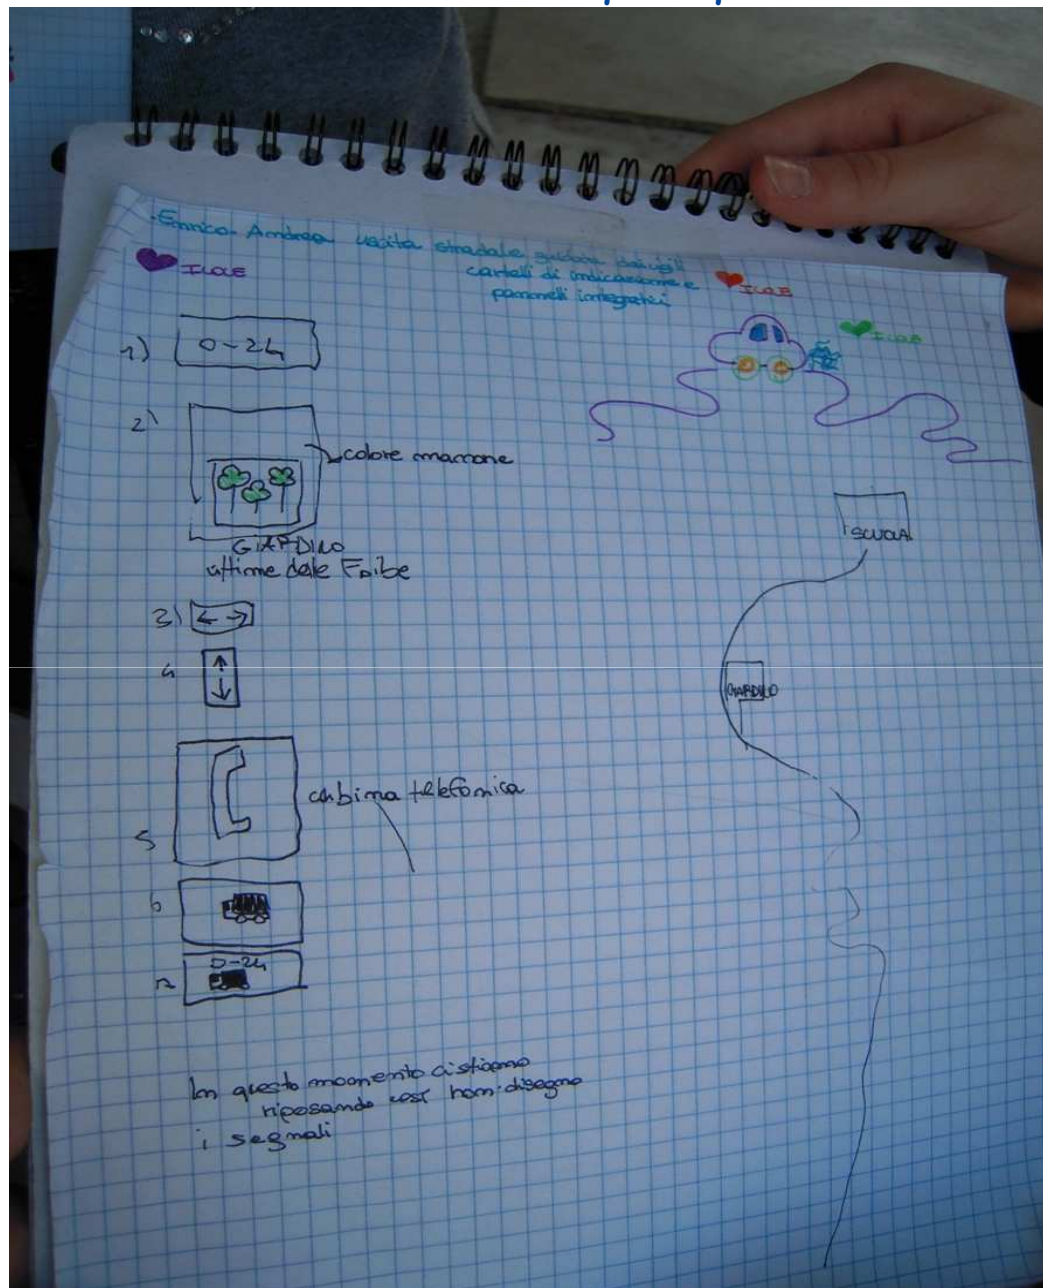 Enrico - Andrea uscita stradale guidata dai vigili
cartelli di indicazione e
pannelli integrativi
ILOE
ILOE
ILOE
1) 0-24
2)
colore marrone
GIARDINO
vittime delle Foibe
SCUOLA
3)
4
GIARDINO
5
cabina telefonica
6
7
0-24
In questo momento ci stiamo
riposando così non disegno
i segnali